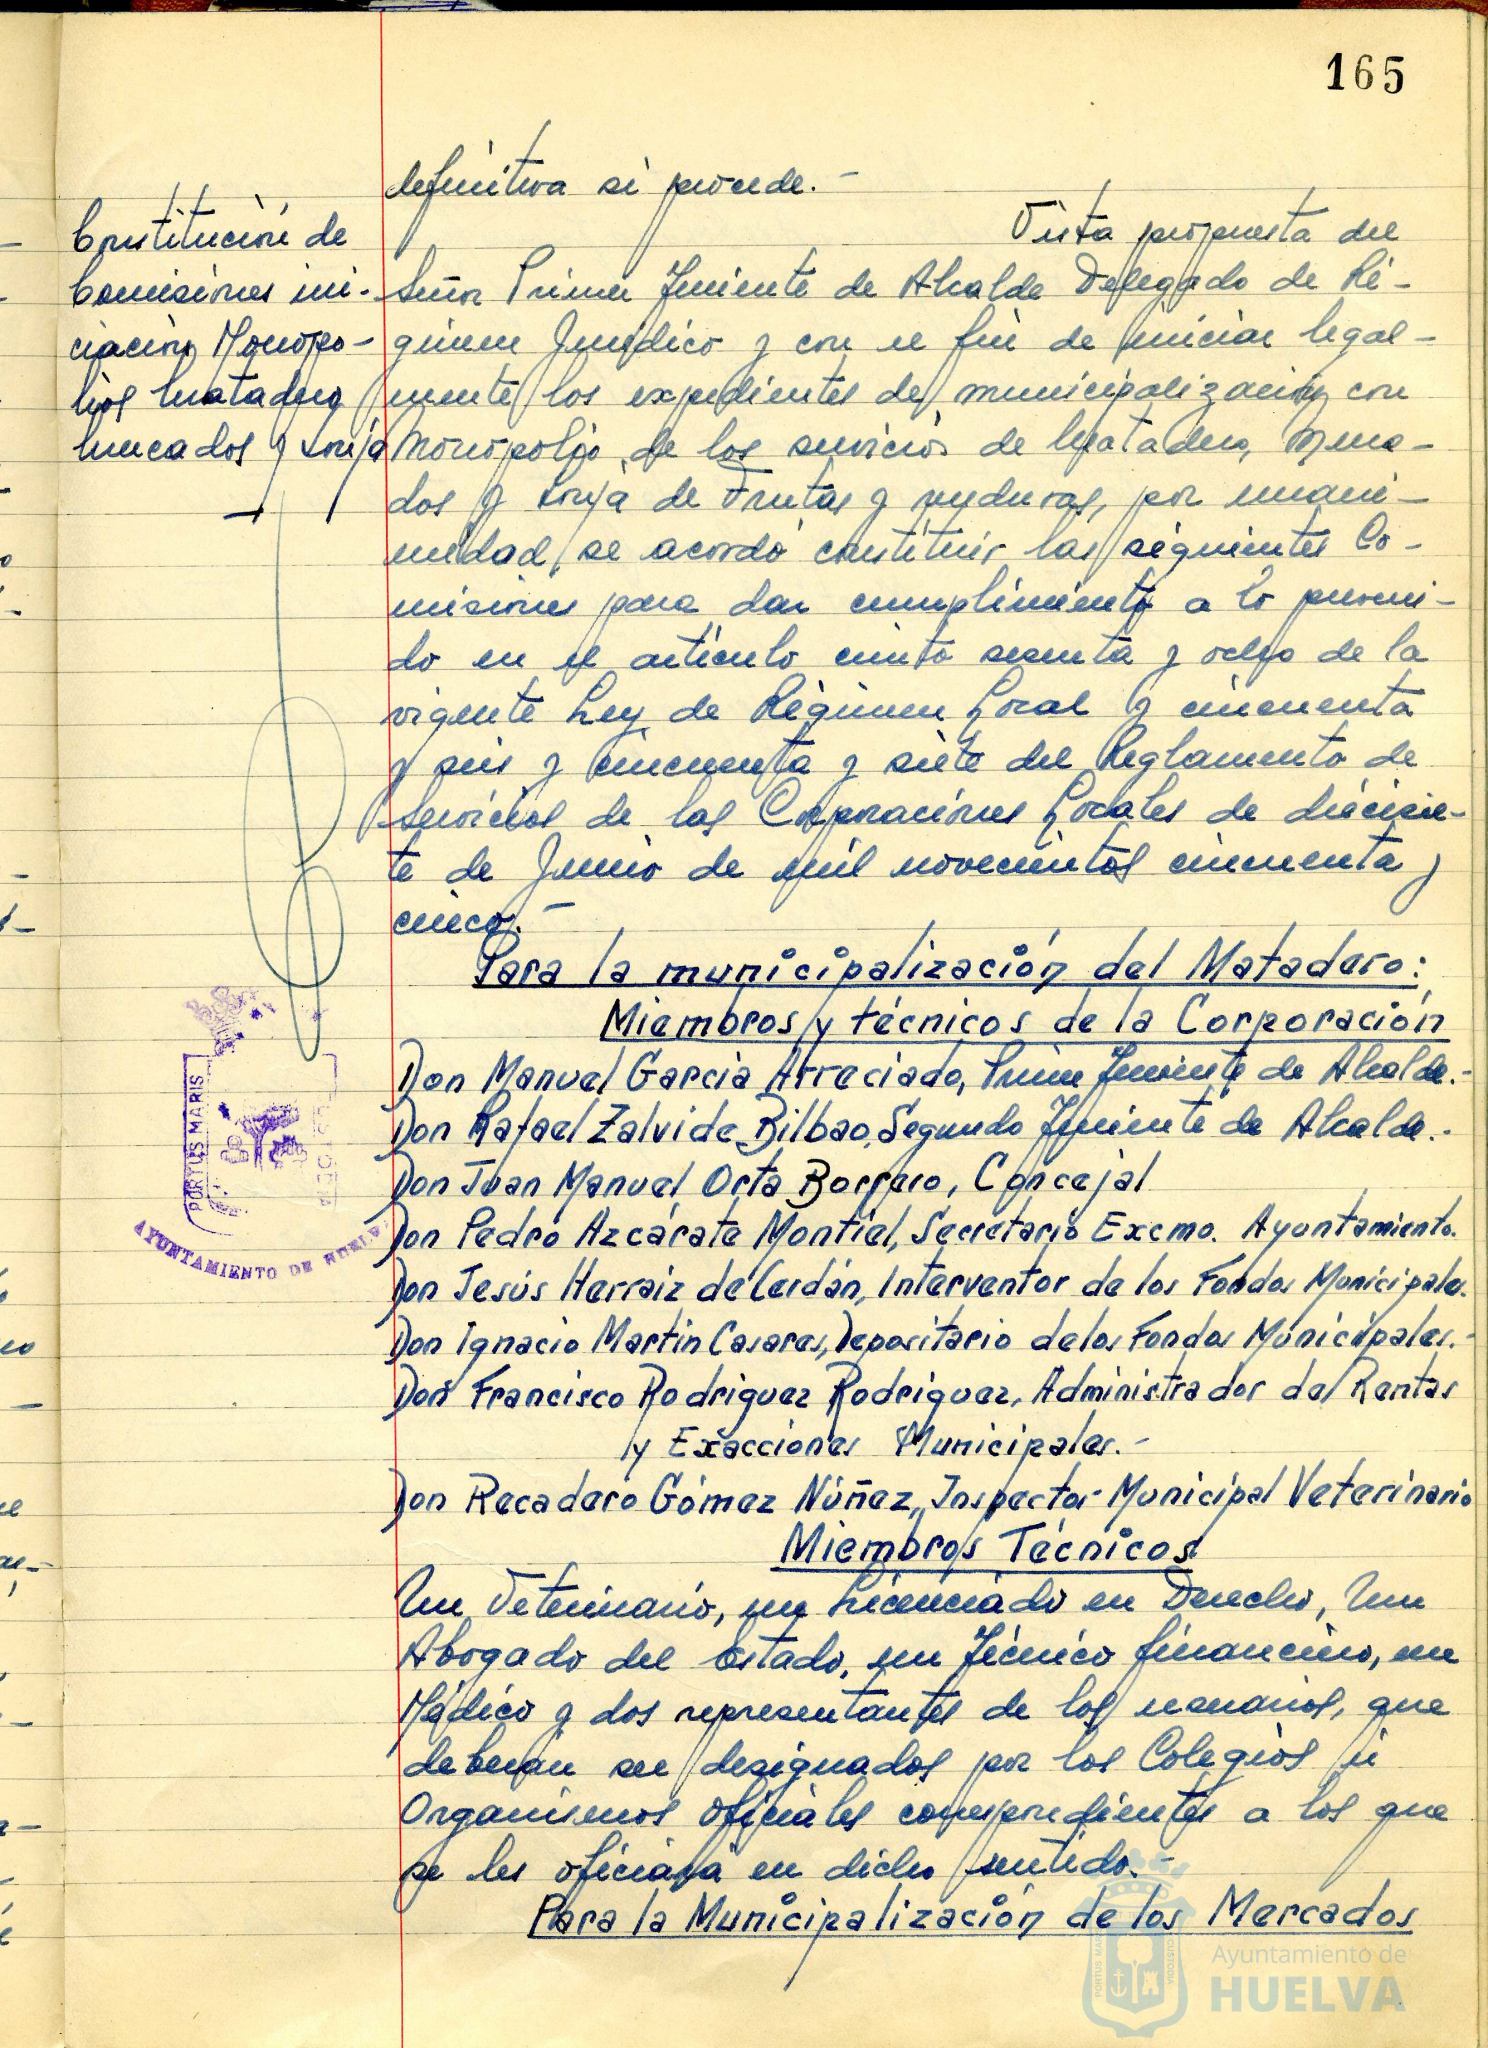 165
definitiva si procede.-
Constitución de
Comisiones ini-
ciación Monopo-
lios Matadero
Mercados y Lonja
Vista propuesta del
Señor Primer Teniente de Alcalde Delegado de Ré-
gimen Jurídico y con el fin de iniciar legal-
mente los expedientes de municipalización con
Monopolio de los servicios de Matadero, Merca-
dos y Lonja de Frutas y verduras, por unani-
midad, se acordó constituir las siguientes Co-
misiones para dar cumplimiento a lo preveni-
do en el artículo ciento sesenta y ocho de la
vigente Ley de Régimen Local y cincuenta
y seis y cincuenta y siete del Reglamento de
Servicios de las Corporaciones Locales de diecisie-
te de Junio de mil novecientos cincuenta y
cinco.-
Para la municipalización del Matadero:
Miembros y técnicos de la Corporación
Don Manuel García Arreciado, Primer Teniente de Alcalde.-
Don Rafael Zalvide Bilbao, Segundo Teniente de Alcalde.-
Don Juan Manuel Orta Borrero, Concejal
Don Pedro Azcárate Montiel, Secretario Excmo. Ayuntamiento.
Don Jesús Herraiz de Cerdán, Interventor de los Fondos Municipales.
Don Ignacio Martin Casares, Depositario de los Fondos Municipales.-
Don Francisco Rodriguez Rodriguez, Administrador del Rentas
y Exacciones Municipales.-
Don Recadero Gómez Núñez, Inspector Municipal Veterinario
Miembros Técnicos
Un Veterinario, un Licenciado en Derecho, Un
Abogado del Estado, un Técnico financiero, un
Médico y dos representantes de los usuarios, que
deberán ser designados por los Colegios u
Organismos oficiales correspondientes a los que
se les oficiará en dicho sentido.-
Para la Municipalización de los Mercados
PORTUS MARIS
AYUNTAMIENTO DE HUELVA
Ayuntamiento de
HUELVA